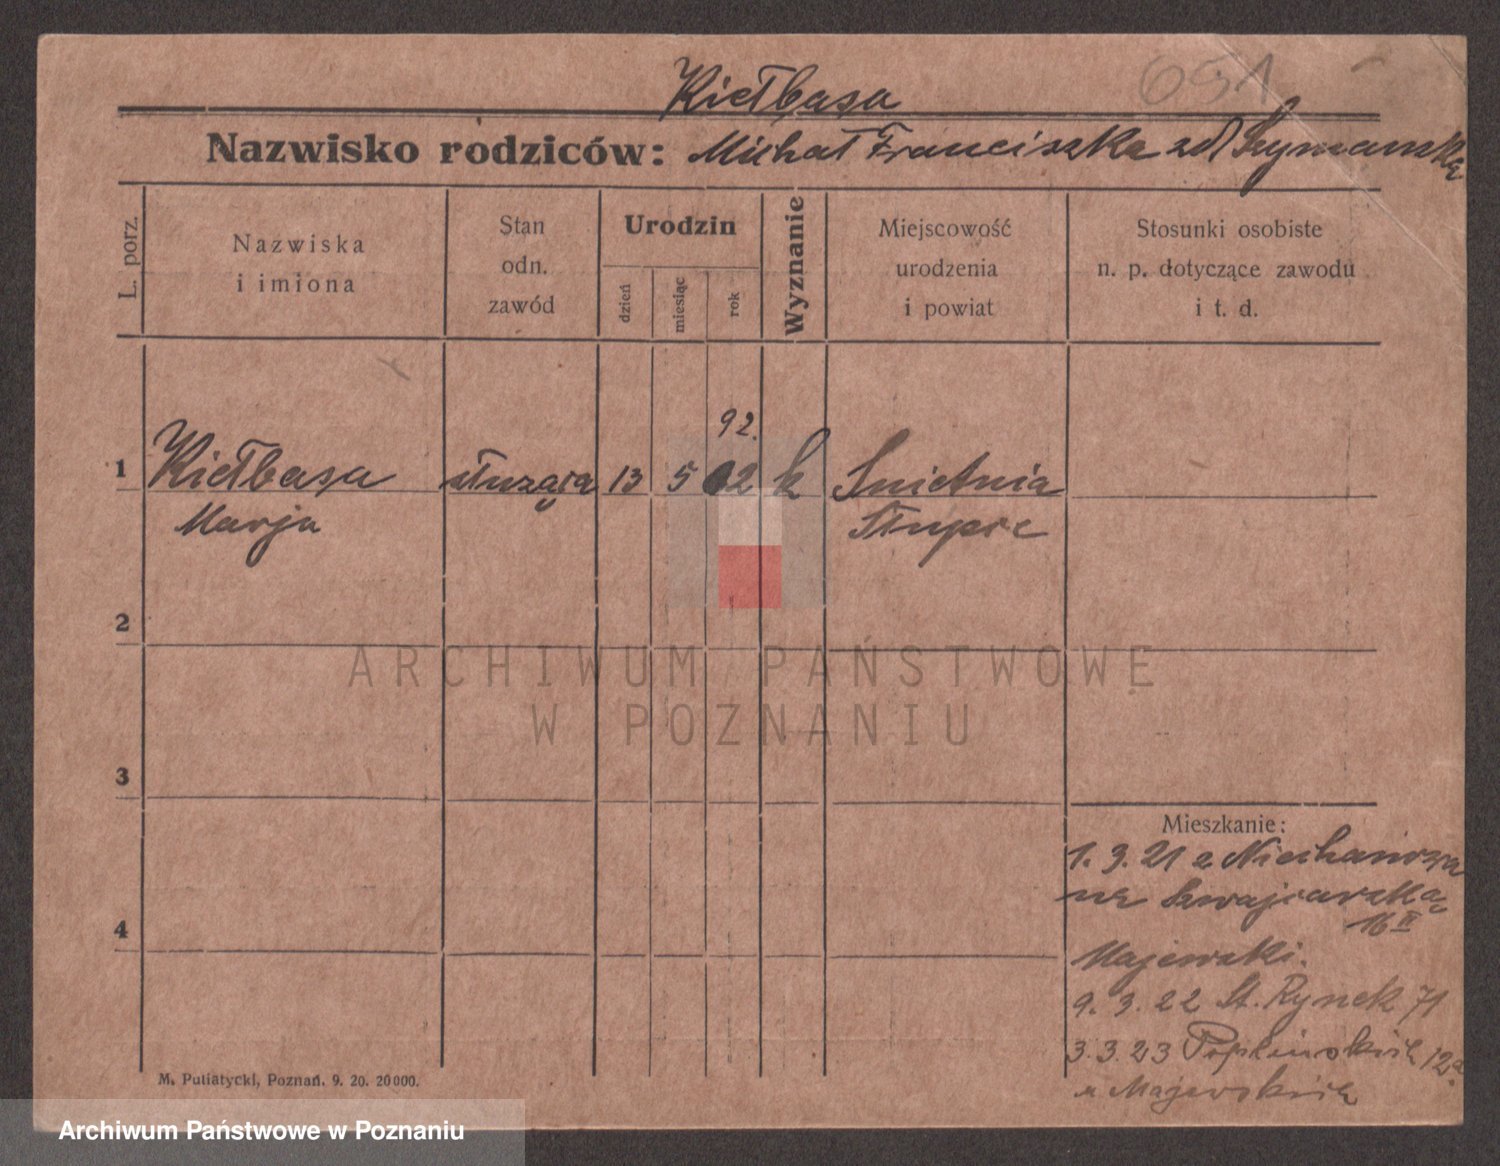 691
Kiełbasa
Nazwisko rodziców: Michał Franciszka zd Szymanska
L. porz.
Nazwiska
i imiona
Stan
odn.
zawód
Urodzin
dzień
miesiąc
rok
Wyznanie
Miejscowość
urodzenia
i powiat
Stosunki osobiste
n. p. dotyczące zawodu
i t. d.
92.
1 Kiełbasa służąca 13 5 02 k Snietnia
Marja Słupce
2
ARCHIWUM PAŃSTWOWE
W POZNANIU
3
Mieszkanie:
1. 3. 21 z
na Szwajcarską
16 II
4
Majewski.
9. 3. 22 St. Rynek 71
3. 3. 23 Poplińskich 12a
u Majewskich
M. Putiatycki, Poznań. 9. 20. 20000.
Archiwum Państwowe w Poznaniu